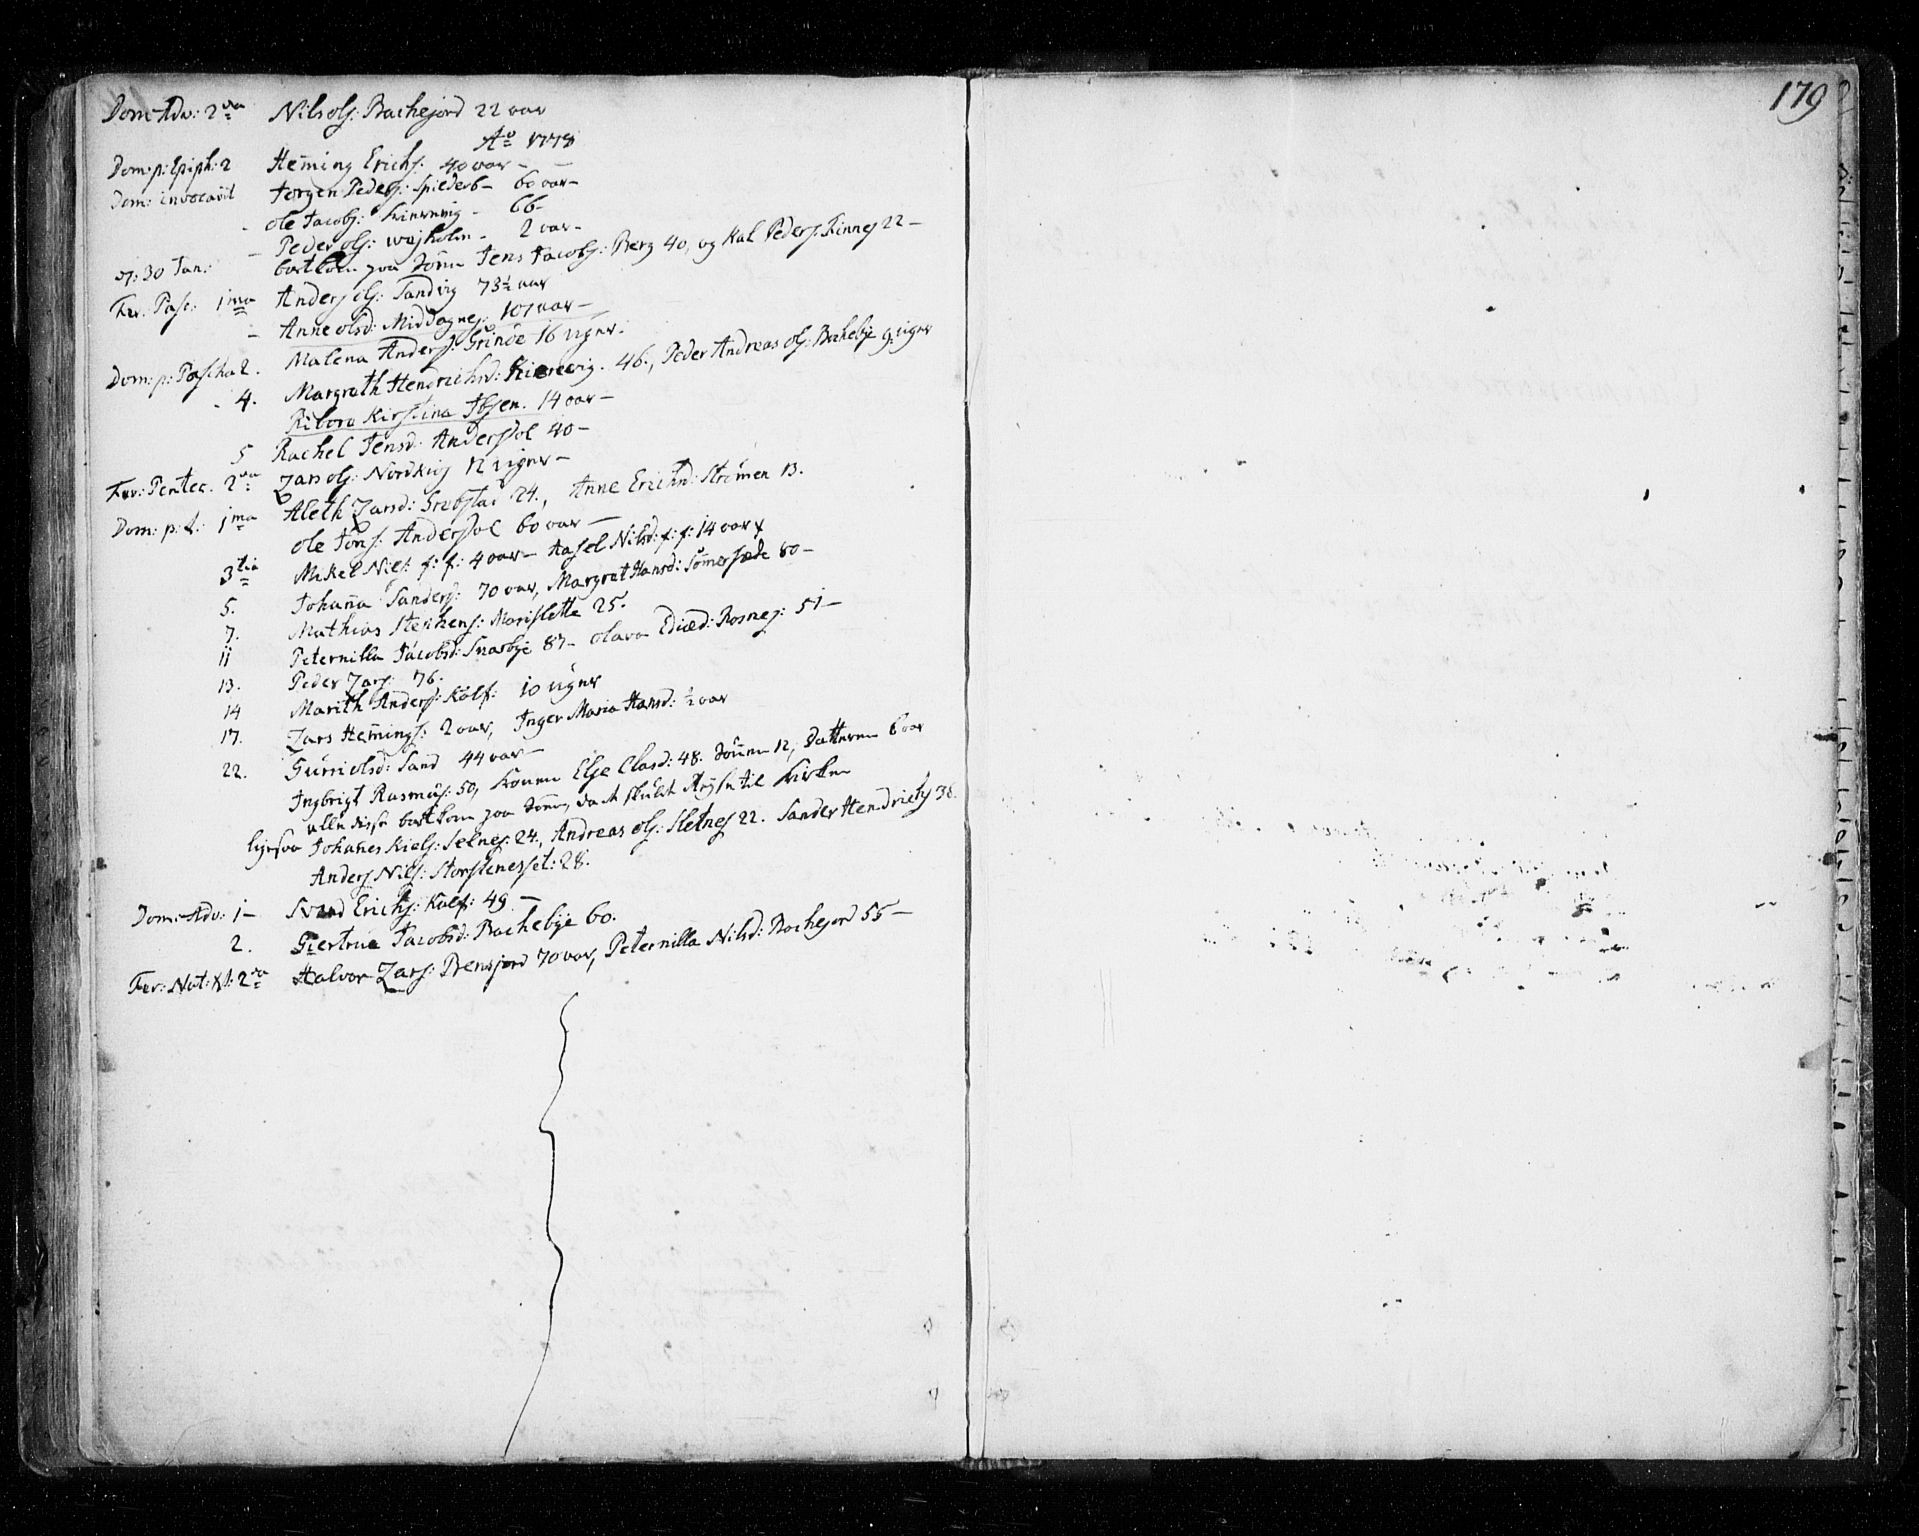 179
Dom: Adv: 2da Nils ols: Bachejord 22 aar
Ao 1778
Dom: p: Epiph: 2 Heming Erichs: 40 aar
Dom: invocavit Jørgen Peders: 60 aar
ole Jacobs: 66
Peder ols: wajholm 2 aar
d: 30 Jan: bortkom paa Søen Jens Jacobs: Berg 40, og Kal Peders: Finnes 22
Fer. Pasc: 1ma Anders ols: Sandvig 73½ aar
Anne olsd: Middagnes: 107 aar
Dom: p: Pascha 2. Malena Anders: Grinde 16 uger
4. Margreth Hendrichsd: Kierevig. 46., Peder Andreas ols: Bakebye 9 uger
Ribora Kirstina Ibsen. 14 aar
5 Rachel Jensd: Andersdal 40
Fer: Pentec. 2da Lars ols: Nordkiøs 12 uger
Dom: p: t: 1ma Aleth Larsd: Grebstad 24., Anne Erichsd: Strømen 13.
ole Jons: Andersdal 60 aar
3tia Mikel Niels: f: f: 4 aar Aasel Nilsd: f: f: 14 aar
5. Johana Sanders: 70 aar, Margret Hansd: Sømersæde 80
7. Mathias Stephens: Marislette 25.
11 Peternilla Jacobsd: Snarbye 87 olava Rosnes: 51
13. Peder Lars: 76.
14 Marith Anders: Kalf: 10 uger
17. Lars Hemings: 2 aar, Inger Maria Hansd: ½ aar
22. Gurri olsd: Sand 44 aar
Ingbrigt Rasmus: 50, konen Else Clasd: 48. Sønen 12, Datteren 6 aar
alle disse bortkom paa Søen, da de skulde Reyse til Kirken
ligesaa Johanes Niels: Selnes: 24., Andreas ols: Sletnes 22. Sander Hendrichs 38.
Anders Nils: Storstenesset: 28.
Dom: Adv: 1 Svend Erichs: Kalf: 49
2. Giertrue Jacobsd: Bachebye 60.
Fer: Nat: Xt: 2da Halvor Lars: Brensjord 70 aar, Peternilla Nilsd: Bachejord 55